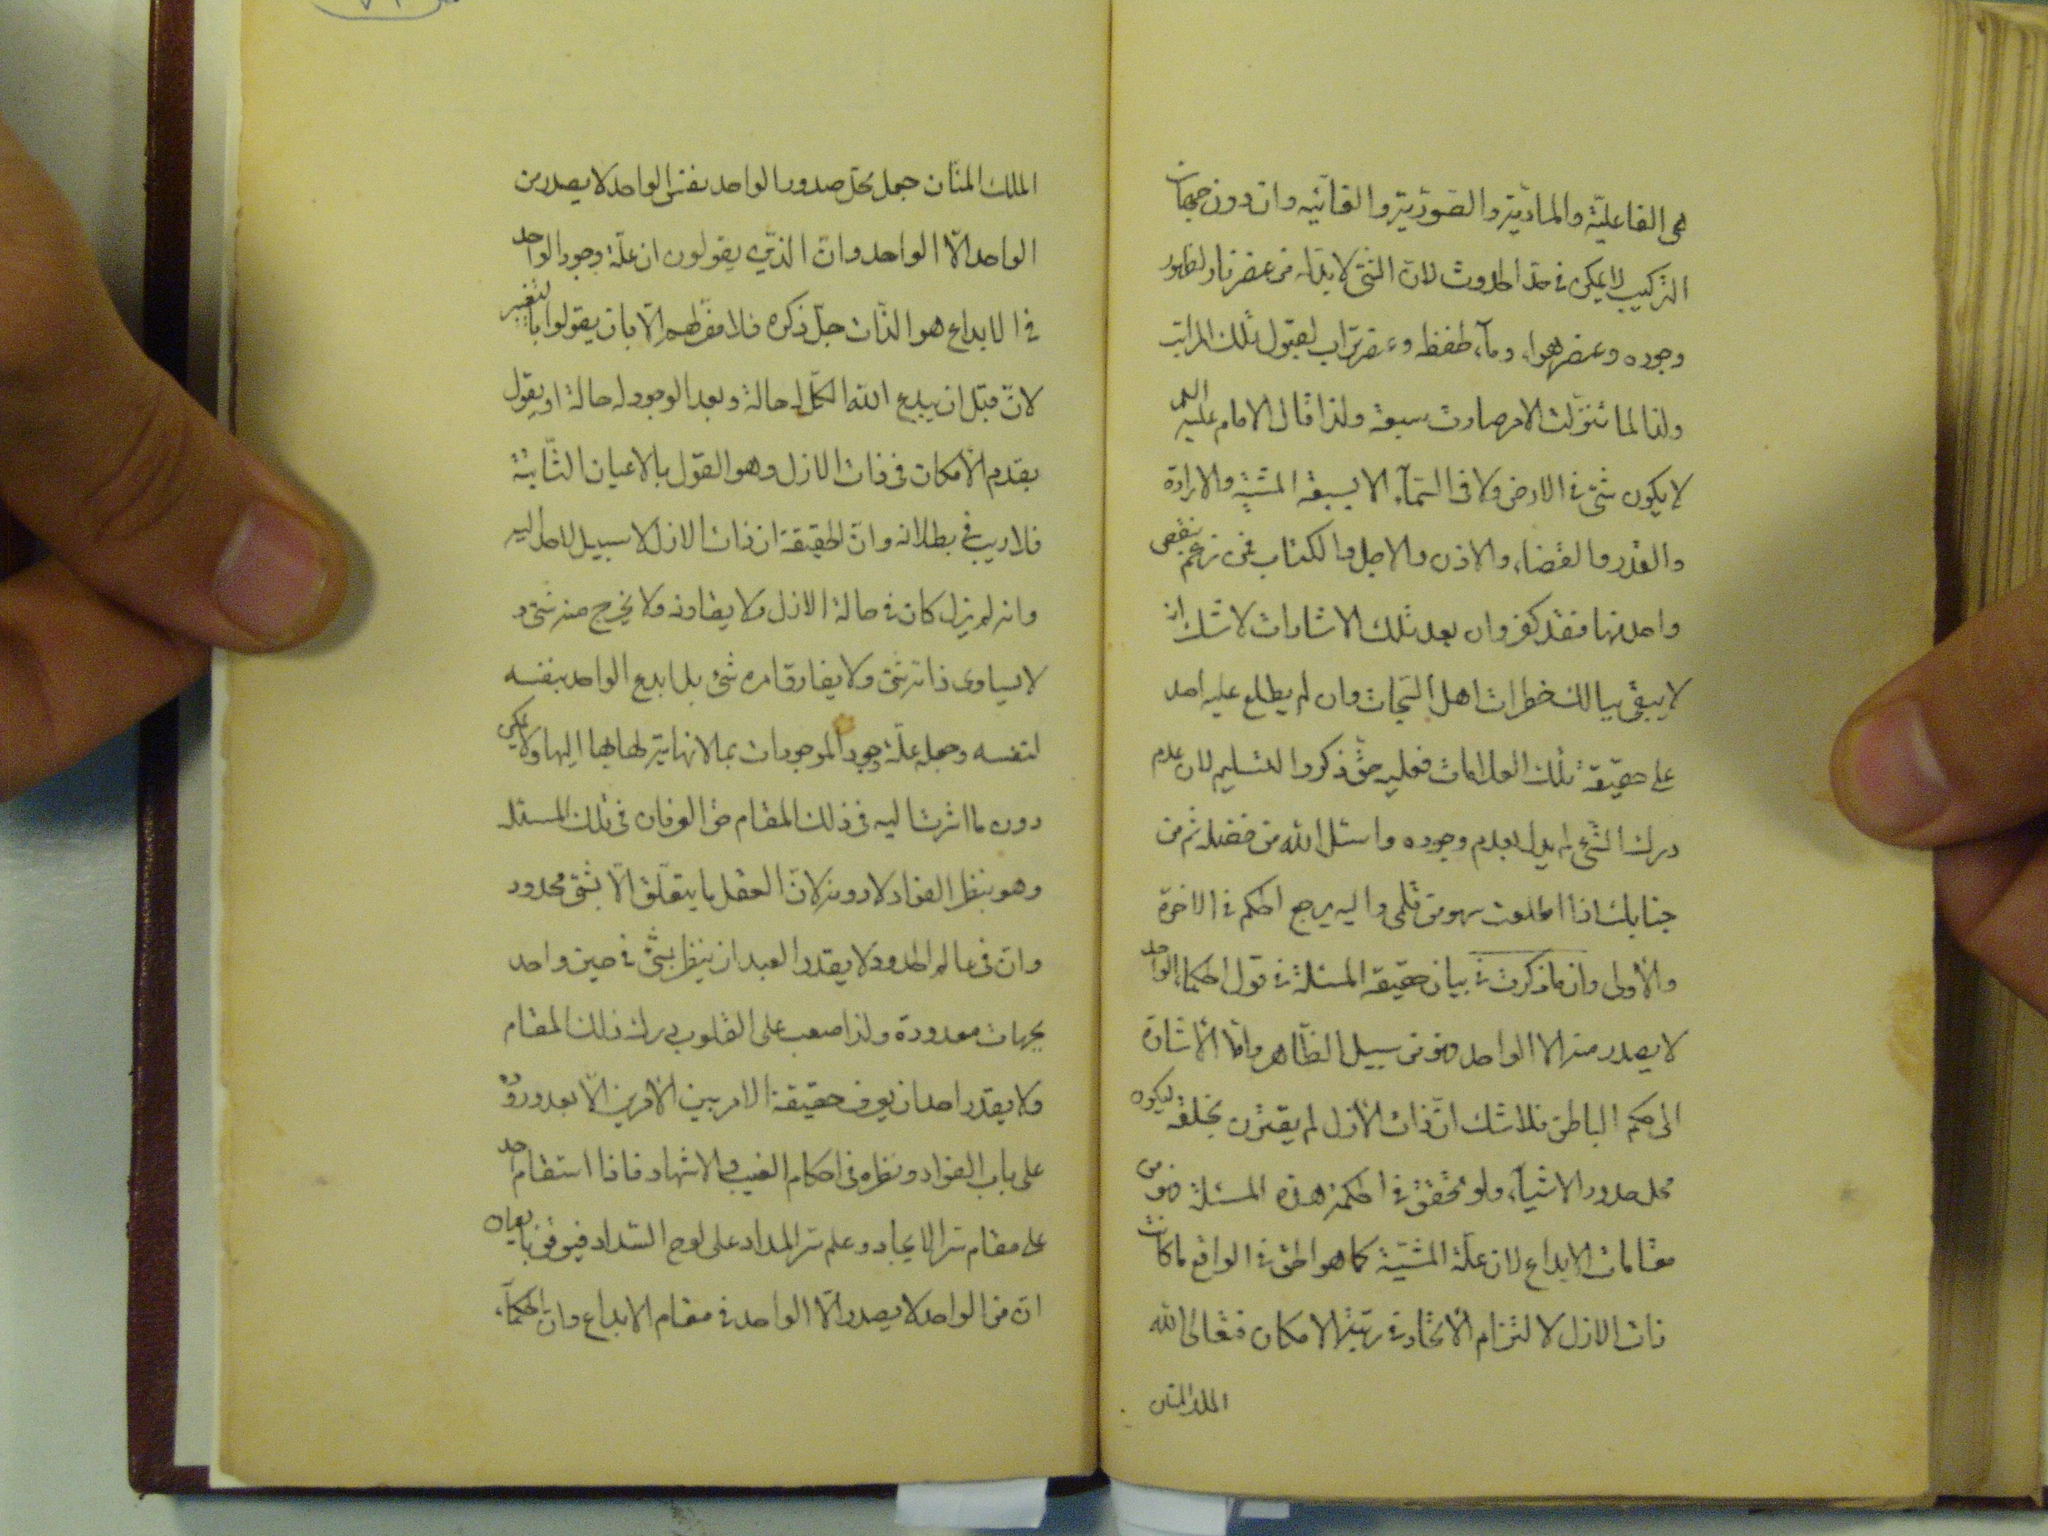 هی الفاعلیّة والمادّیة والصّوریّة والغائیه وانّ دون جهات
الترکیب لا یمکن فی حدّ الحدوث لانّ الشئ لا بدّ له من عنصر نار لظهور
وجوده وعنصر هواء وماء لحفظه وعنصر تراب لقبول تلک المراتب
ولذا لما تنزّلت الامر صارت سبعة ولذا قال الامام علیه السلم
لا یکون شئ فی الارض ولا فی السّماء الا بسبعة المشیّة والارادة
والقدر والقضاء والاذن والاجل والکتاب فمن زعم بنقص
واحد منها فقد کفر وان بعد تلک الاشارات لا شکّ ان
لا یبقی ببالک خطرات اهل السّبحات وان لم یطلع علیه احد
علی حقیقة تلک العلامات فعلیه حقّ ذکر والتسلیم لان عدم
درک الشئ لم یدل بعدم وجوده واسئل الله من فضله ثم من
جنابک اذا اطلعت بسهو من قلمی والیه یرجع الحکم فی الاخرة
والاولی وان ما ذکرت فی بیان حقیقة المسئلة فی قول الحکماء الواحد
لا یصدر منه الا الواحد وهو من سبیل الظّاهر وامّا الاشارة
الی حکم الباطن فلا شک انّ ذات الازل لم یقترن بخلقه لیکون
محل صدور الاشیاء ولو تحقق فی الحکمة هذه المسئلة وهو من
مقامات الابداع لان علّة المشیّة کما هو الحق فی الواقع ما کانت
ذات الازل لا لتزام الاتحاد فی رتبة الامکان فتعالی الله
الملک المنان
الملک المنّان جعل محلّ صدور الواحد نفس الواحد لا یصدر من
الواحد الّا الواحد وانّ الذّین یقولون ان علّة وجود الواحد
فی الابداع هو الذّات جلّ ذکره فلا مفرّ لهم الّا بان یقولوا بالتغییر
لانّ قبل ان یبدع الله الکلّ له حالة وبعد الوجود له حالة او یقول
بقدم الامکان فی ذات الازل وهو القول بالاعیان الثّابتة
فلا ریب فی بطلانه وانّ الحقیقة ان ذات الازل لا سبیل لاحد الیه
وانه لم یزل کان فی حالة الازل ولا یقارنه ولا یخرج منه شئ و
لا یساوی ذاته شئ ولا یفارق امره شئ بل ابدع الواحد بنفسه
لنفسه وجعله علّة وجود الموجودات بما لا نهایة لها بها الیها ولا یمکن
دون ما اشرت الیه فی ذلک المقام من العرفان فی تلک المسئلة
وهو بنظر الفؤاد لا دونه لانّ العقل ما یتعلّق الّا بشئ محدود
وانّ فی عالم الحدود لا یقدر العبد ان ینظر بشئ فی حین واحد
بجهات معدودة ولذا صعب علی القلوب درک ذلک المقام
ولا یقدر احد ان یعرف حقیقة الامر بین الامرین الّا بعد وروده
علی باب الفؤاد ونظره فی احکام الغیب والاشهاد فاذا استقام احد
علی مقام سّر الایجاد وعلم سّر المداد علی لوح السّداد فیوقن بالعیان
انّ من الواحد لا یصدر الّا الواحد فی مقام الابداع وان الحکماء